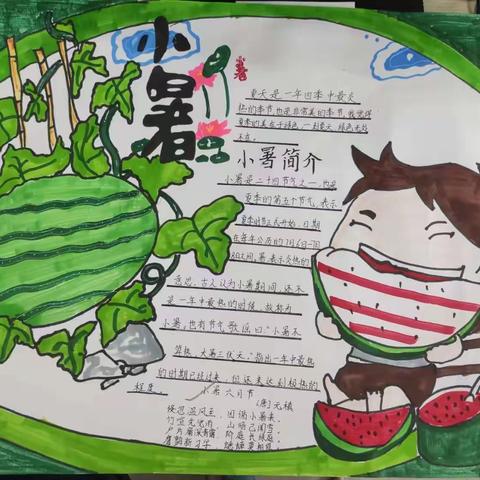 小暑
夏天是一年四季中最炎
热的季节,也是非常美的季节,我觉得
夏季的美在于绿色,一到夏天,绿色无处
不在。
小暑简介
小暑是二十四节气之一,也是
夏季的第五个节气,表示
夏季时节正式开始,日期
在每年公历的7月6日-8日
之间,暑,表示炎热的
意思,古人认为小暑期间,还不
是一年中最热的时候,故称为
小暑,也有节气歌谣曰:“小暑不
算热,大暑三伏天。”指出一年中最热
的时期已经到来,但还未达到极热的
程度。
小暑六月节
(唐)元稹
倏忽温风至,因循小暑来。
竹喧先觉雨,山暗已闻雷。
户牖深青霭,阶庭长绿苔。
鹰鹯新习学,蟋蟀莫相催。